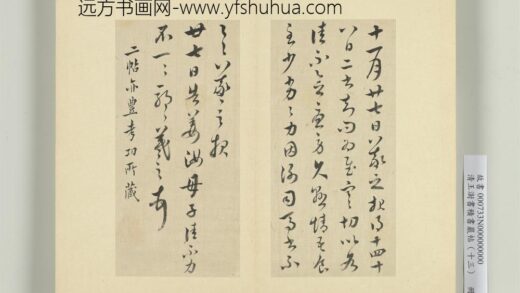 远方书画网-www.yfshuhua.com
十一月廿七日羲之報得十四十
八日二書知問為慰寒切比各
佳不念憂勞久懸情吾食
至少劣劣力因謝司馬書不
一一羲之報
廿七日告姜汝母子佳不力
不一一耶耶羲之告
二帖亦豐考功所藏
故書 000733N000000000
清王澍書積書巖帖(十三)